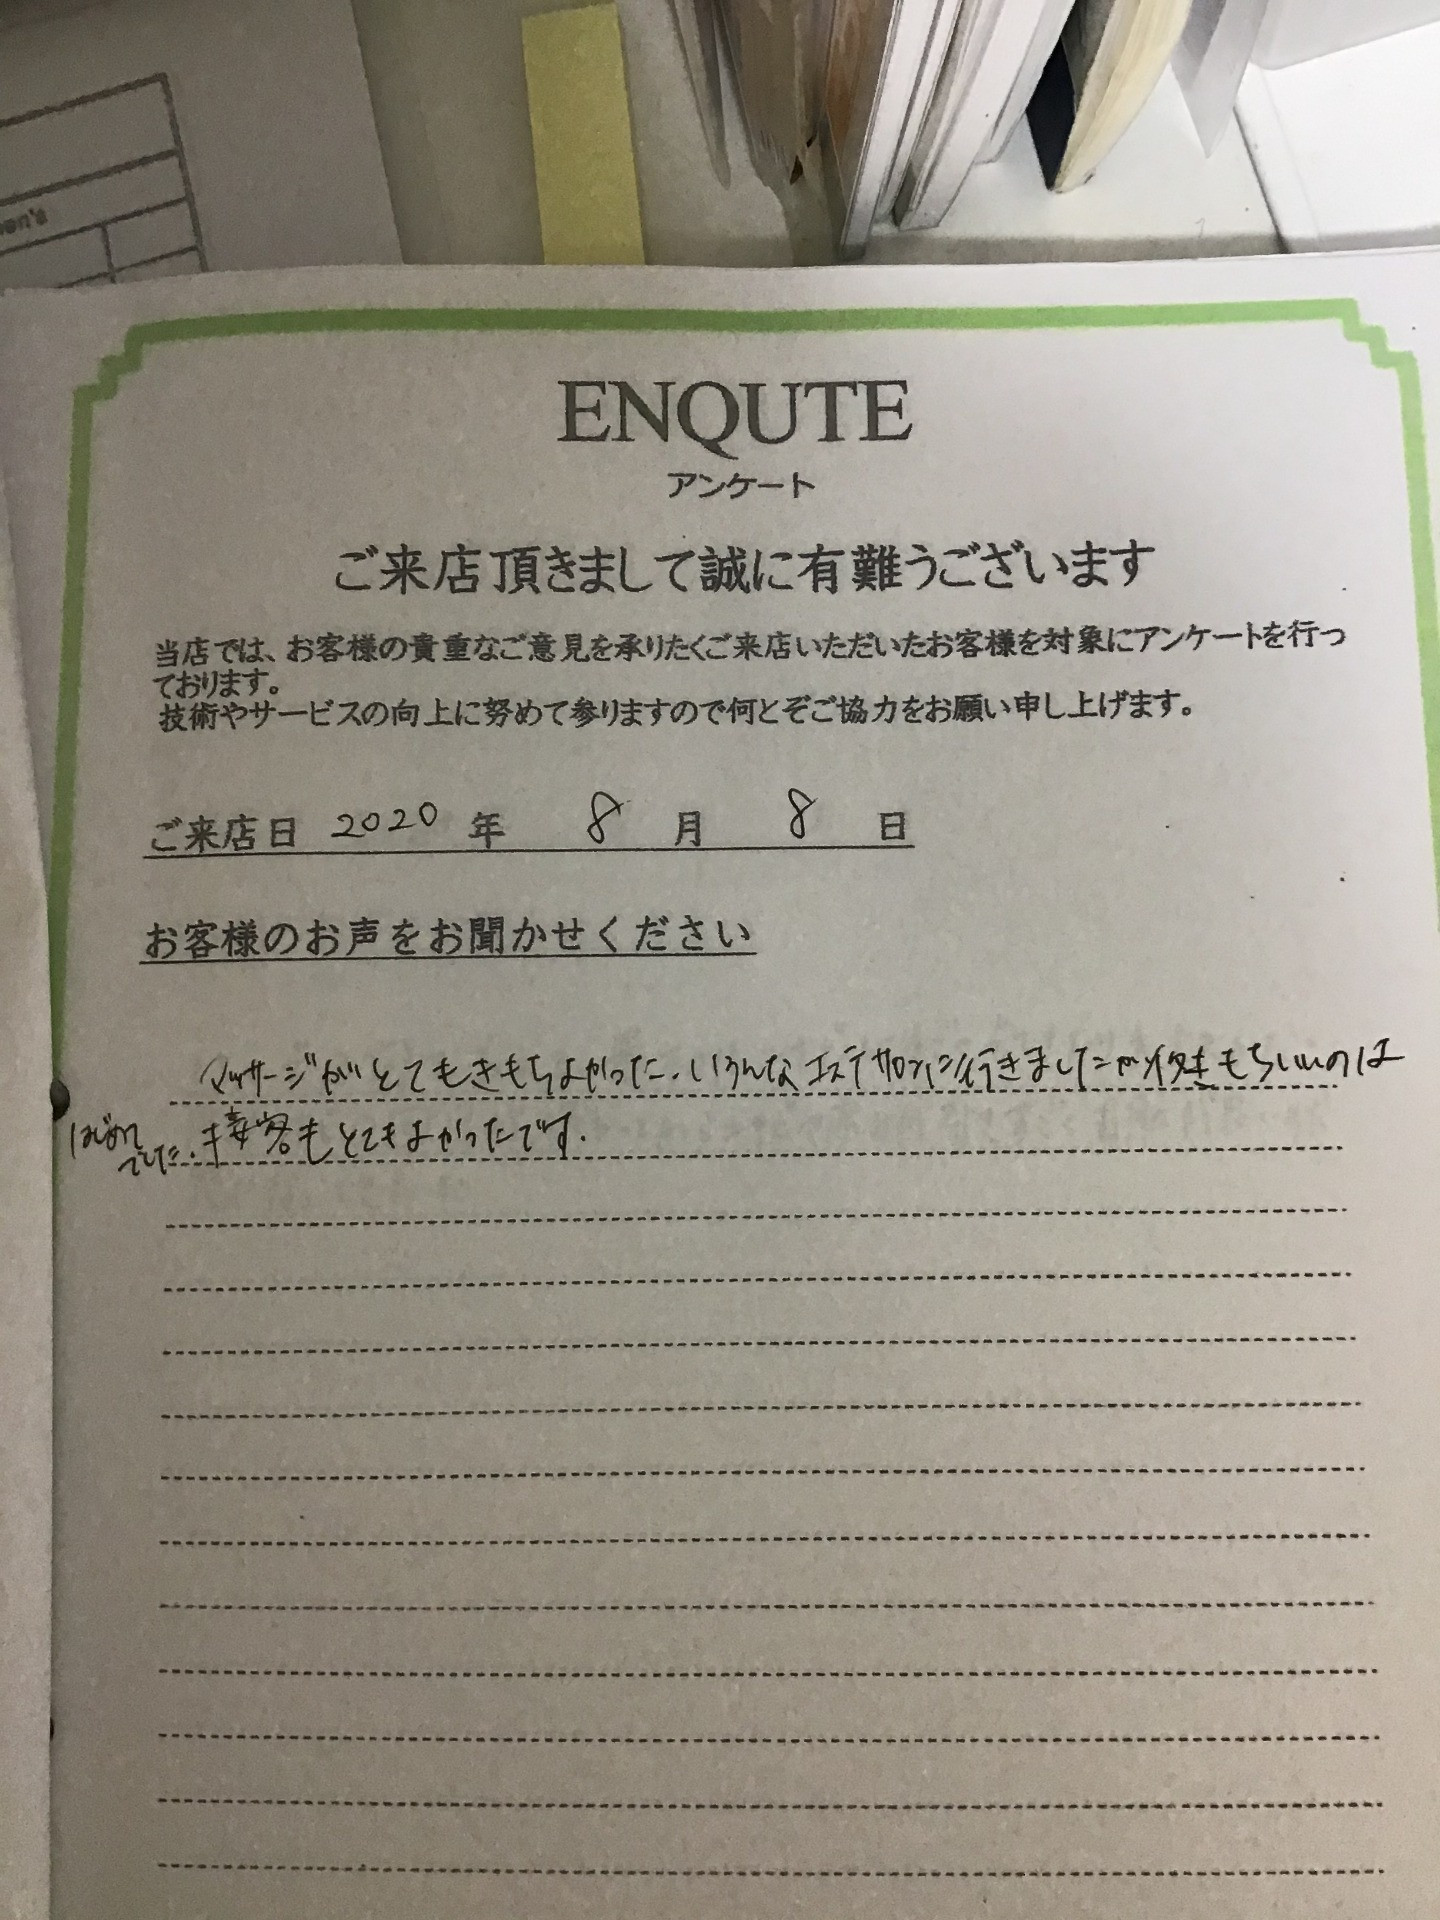 ENQUTE
アンケート
ご来店頂きまして誠に有難うございます
当店では、お客様の貴重なご意見を承りたくご来店いただいたお客様を対象にアンケートを行っ
ております。
技術やサービスの向上に努めて参りますので何とぞご協力をお願い申し上げます。
ご来店日 2020 年 8 月 8 日
お客様のお声をお聞かせください
マッサージがとてもきもちよかった。いろんなエステサロンに行きましたが後もちいいのは
はじめて
でした。接客もとてもよかったです。